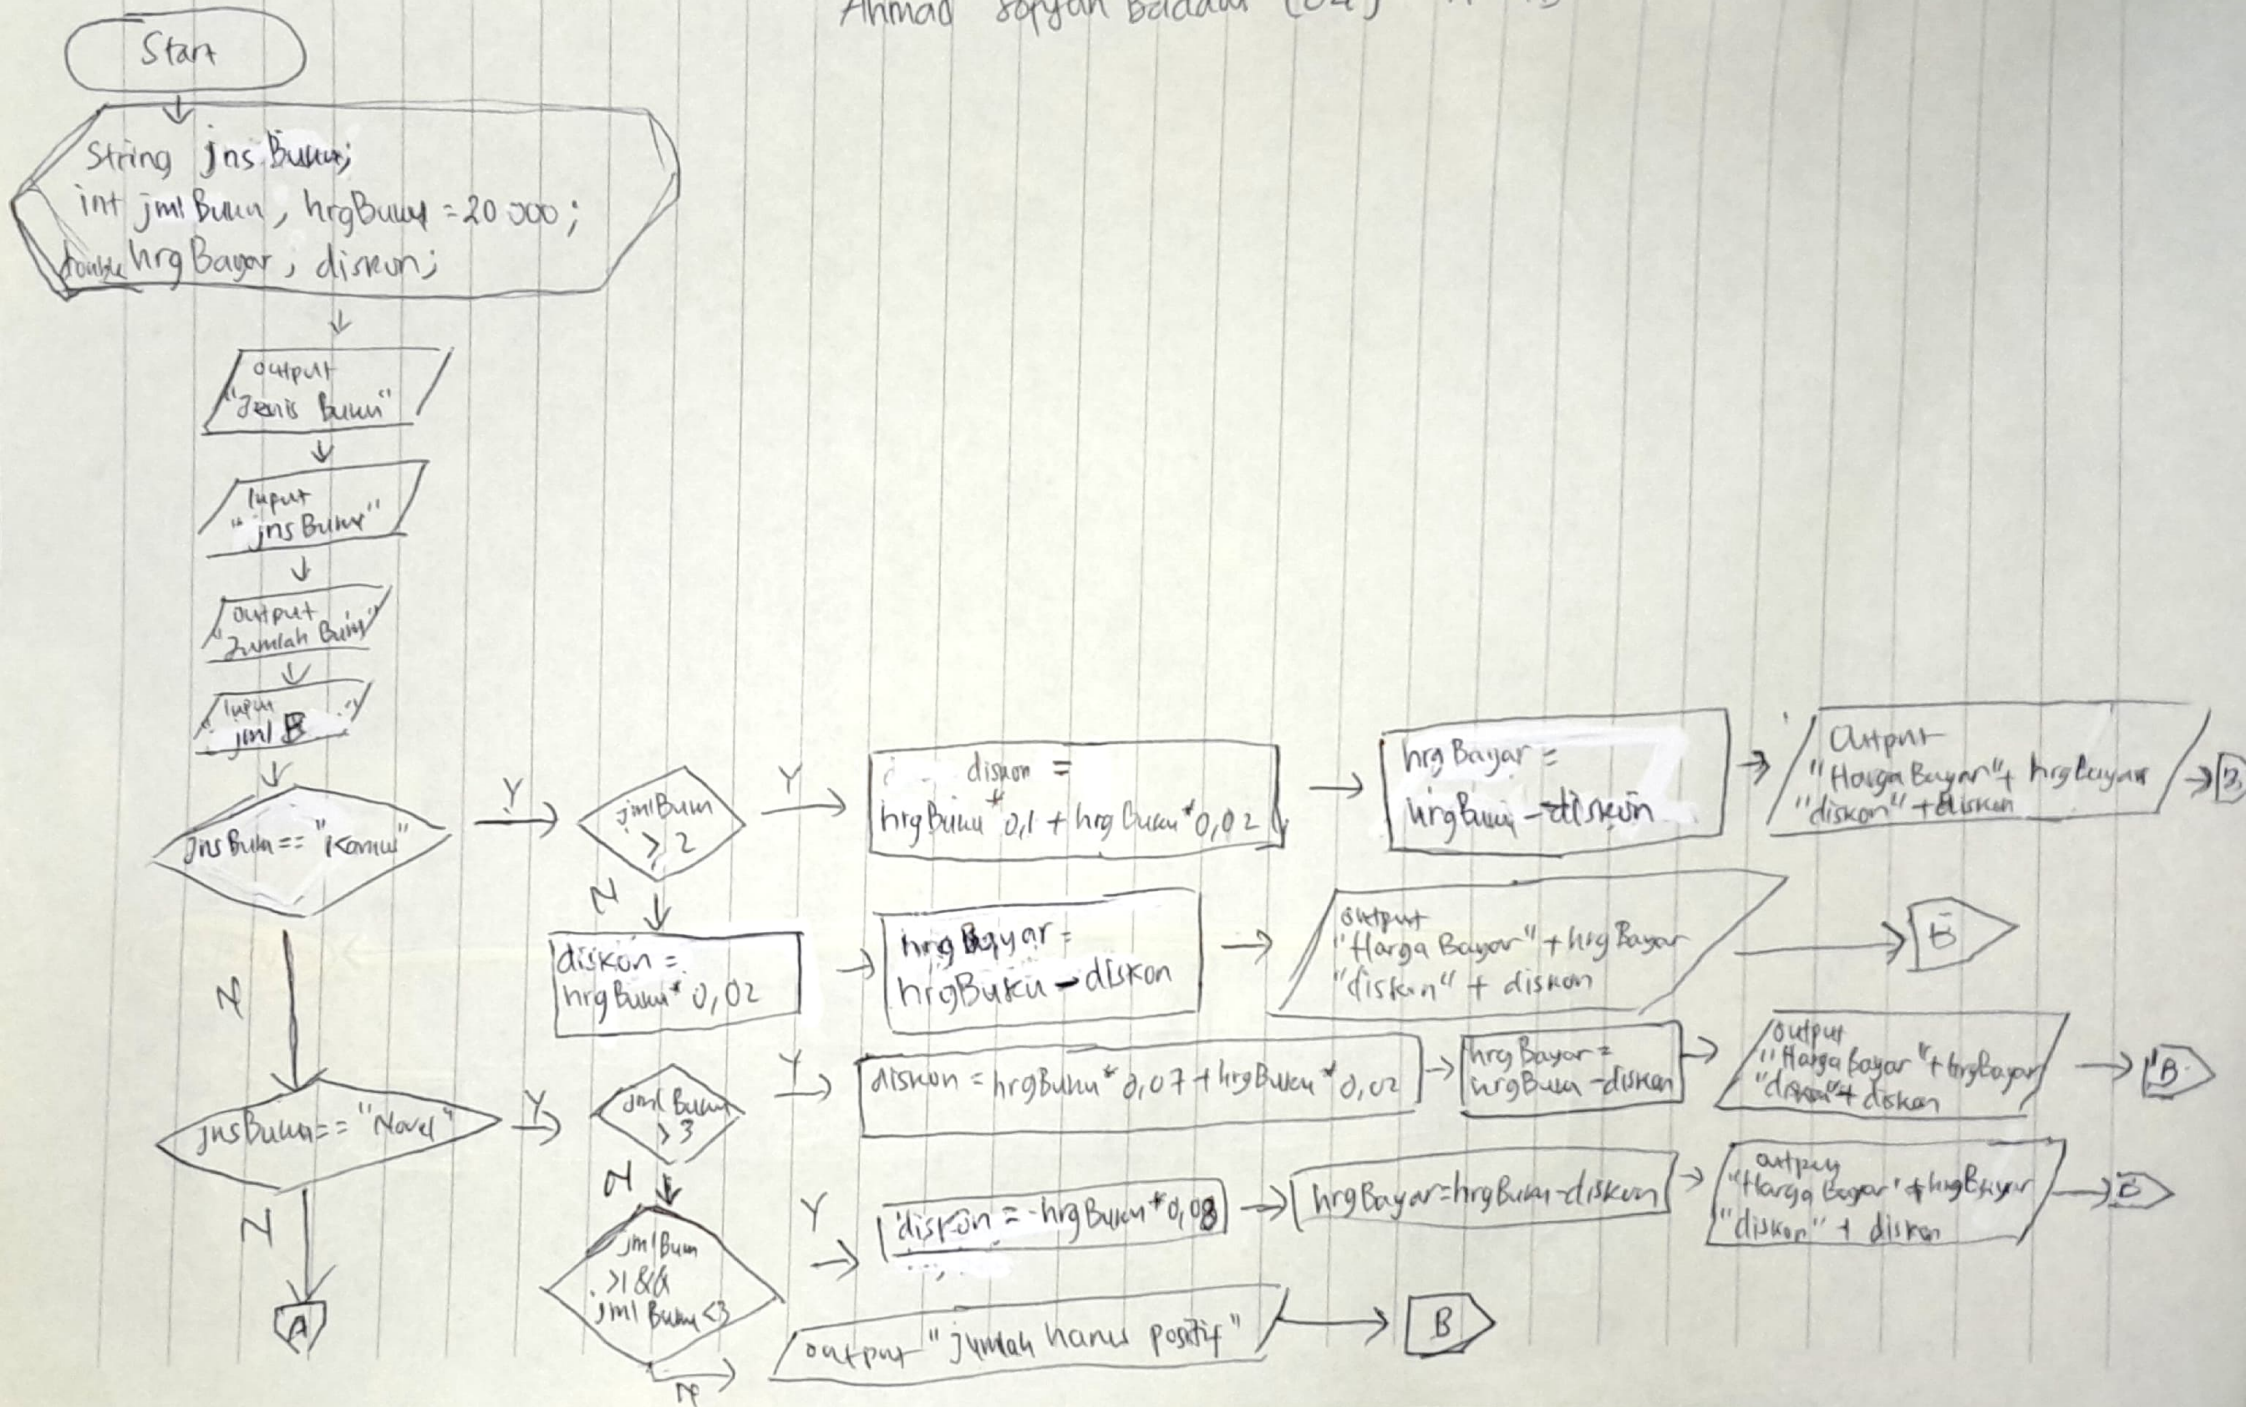 Ahmad Sofyan
Start
String jnsBuku;
int jmlBuku, hrgBuku = 20 000;
double hrgBayar; diskon;
output
"Jenis Buku"
Input
"jnsBuku"
output
"Jumlah Buku"
Input
"jml B"
jnsBuku == "Kamus"
Y
jmlBuku
> 2
Y
diskon =
hrgBuku * 0,1 + hrgBuku * 0,02
hrgBayar =
hrgBuku - diskon
Output
"Harga Bayar" + hrgBayar
"diskon" + diskon
B
N
diskon =
hrgBuku * 0,02
hrgBayar =
hrgBuku - diskon
output
"Harga Bayar" + hrgBayar
"diskon" + diskon
B
N
jnsBuku == "Novel"
Y
jml Buku
> 3
Y
diskon = hrgBuku * 0,07 + hrgBuku * 0,02
hrgBayar =
hrgBuku - diskon
output
"Harga bayar" + hrgBayar
"diskon" + diskon
B
N
jmlBuku
>1 &&
jml Buku <3
Y
diskon = hrgBuku * 0,08
hrgBayar = hrgBuku - diskon
output
"Harga Bayar" + hrgBayar
"diskon" + diskon
B
N
A
N
output "jumlah harus positif"
B